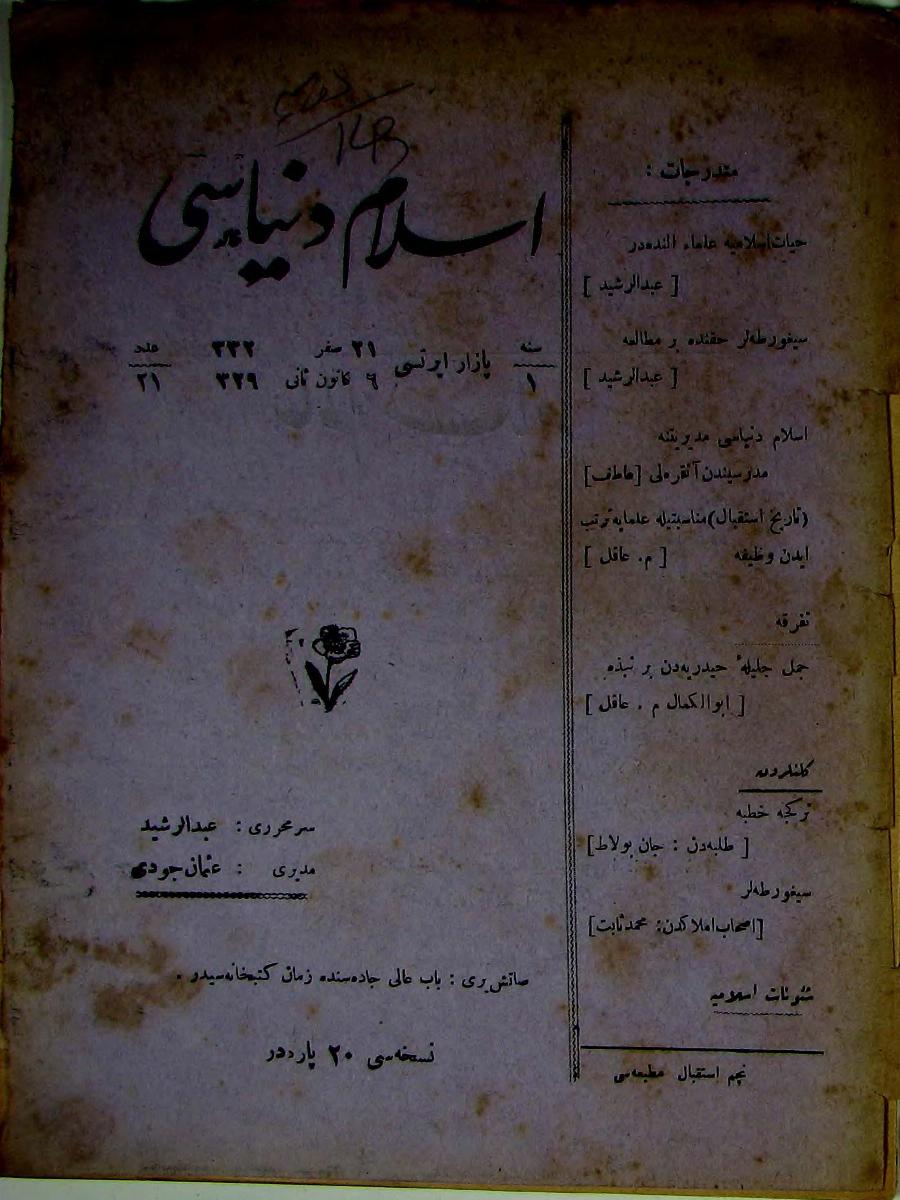 اسلام دنیاسی
سنه ۱
پازار ایرتسی
۲۱ صفر ۳۳۲
۶ کانون ثانی ۳۲۹
عدد ۲۱
سرمحرری : عبدالرشید
مدیری : عثمان جودی
صاتش یری : باب عالی جاده‌سنده زمان کتبخانه‌سیدر .
نسخه‌سی ۲۰ پاره‌در
مندرجات :
حیات اسلامیه علماء النده‌در
[ عبدالرشید ]
سیغورطه‌لر حقنده بر مطالعه
[ عبدالرشید ]
اسلام دنیاسی مدیریتنه
مدرسیندن آنقره‌لی [عاطف]
(تاریخ استقبال) مناسبتیله علمایه ترتب
ایدن وظیفه [ م . عاقل ]
تفرقه
جمل جلیلهٔ حیدریه‌دن بر نبذه
[ ابوالکمال م . عاقل ]
ترکجه خطبه
[ طلبه‌دن : جان بولاط ]
سیغورطه‌لر
[اصحاب املاکدن: محمد ثابت]
شئونات اسلامیه
نجم استقبال مطبعه‌سی